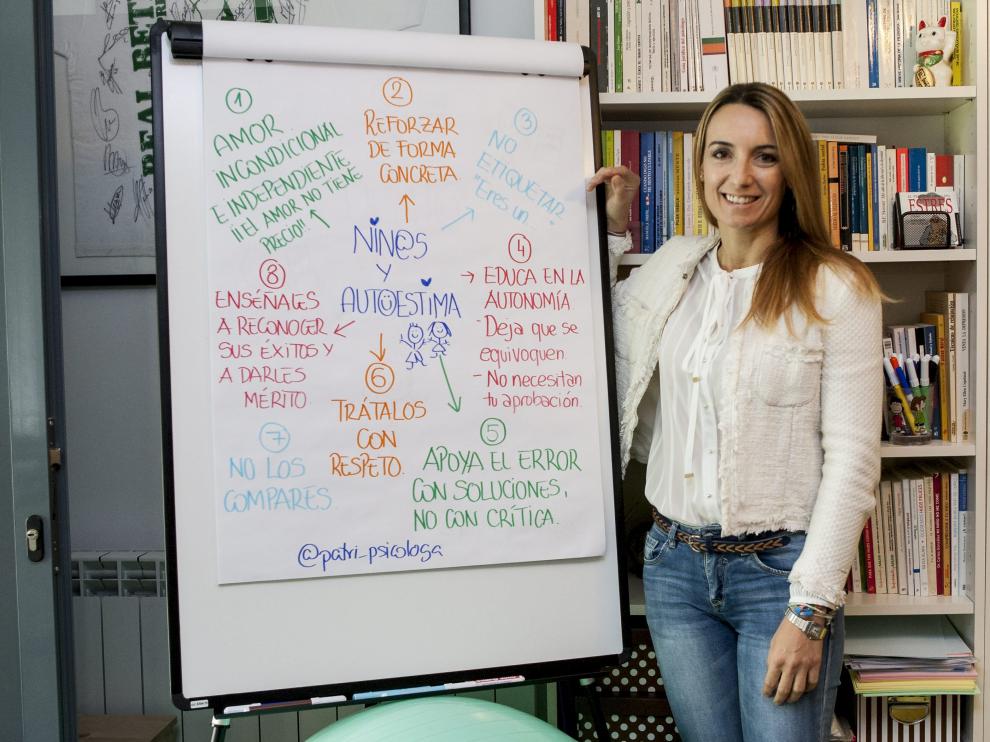 REAL BET
1
AMOR
INCONDICIONAL
E INDEPENDIENTE
¡¡EL AMOR NO TIENE
PRECIO!!
2
REFORZAR
DE FORMA
CONCRETA
3
NO
ETIQUETAR
"Eres un
NIÑ@S
Y
AUTOESTIMA
4
→ EDUCA EN LA
AUTONOMÍA.
- Deja que se
equivoquen.
- No necesitan
tu aprobación.
5
APOYA EL ERROR
CON SOLUCIONES,
NO CON CRÍTICA.
6
TRÁTALOS
CON
RESPETO.
7
NO LOS
COMPARES.
8
ENSÉÑALES
A RECONOCER
SUS ÉXITOS Y
A DARLES
MÉRITO.
@patri_psicologa
ESTRÉS